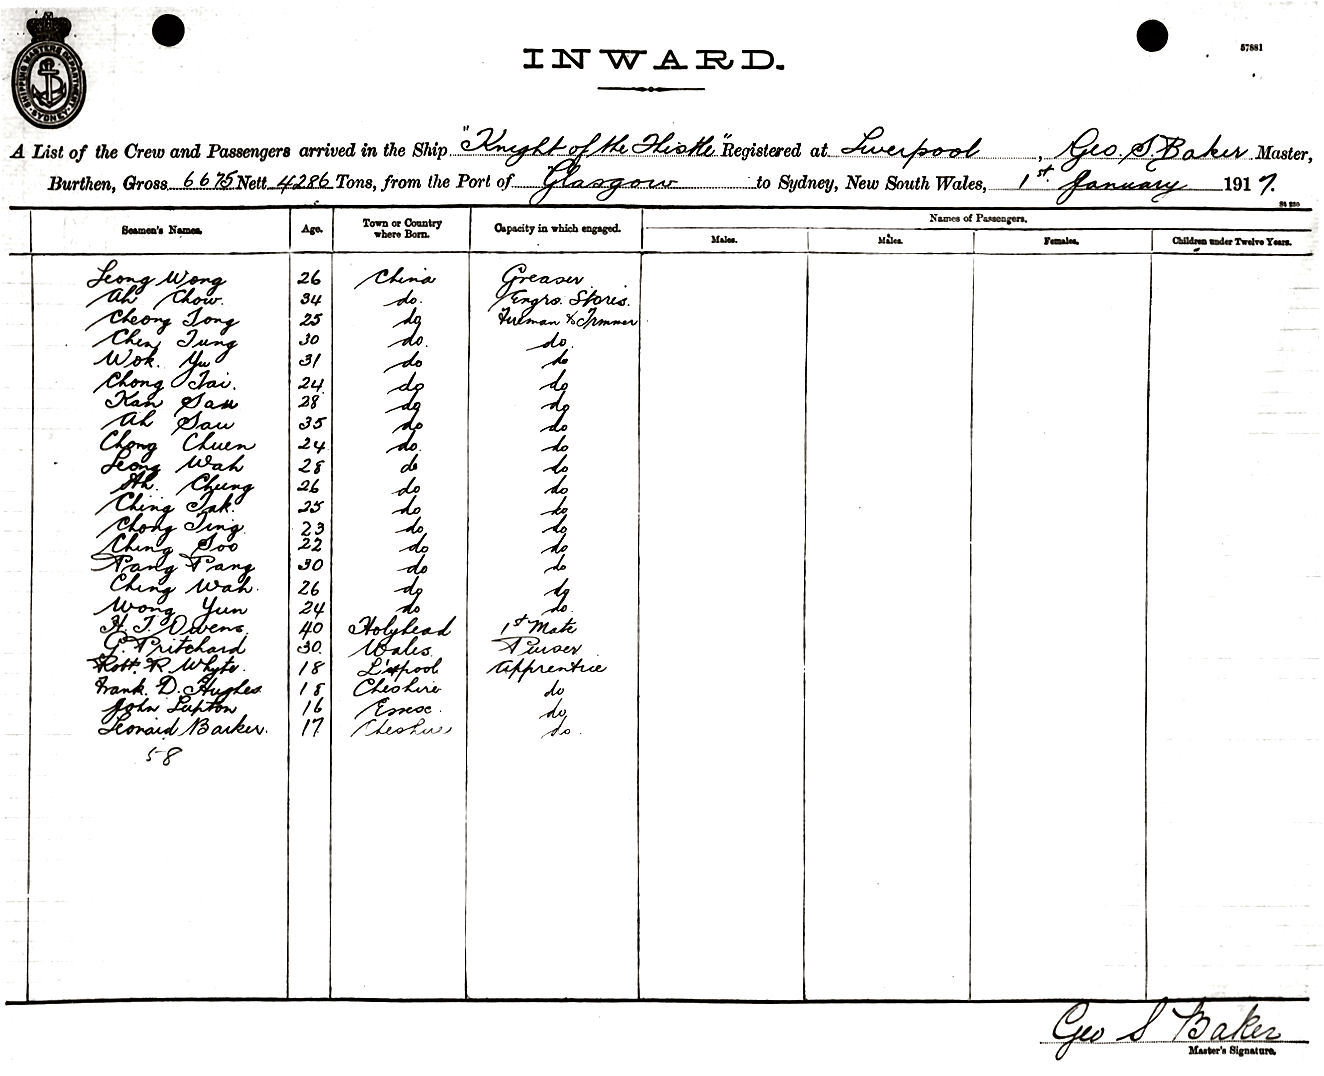 SHIPPING MASTERS DEPARTMENT
SYDNEY
INWARD.
57881
A List of the Crew and Passengers arrived in the Ship "Knight of the Thistle" Registered at Liverpool, Geo. S Baker Master,
Burthen, Gross 6675 Nett 4286 Tons, from the Port of Glasgow to Sydney, New South Wales, 1st January 1917.
Seamen's Names. Age. Town or Country where Born. Capacity in which engaged. Names of Passengers.
Males. Males. Females. Children under Twelve Years.
Leong Wong 26 China Greaser
Ah Chow. 34 do. Engrs. Stores.
Cheong Tong 25 do Fireman & Trimmer
Chen Tung 30 do. do.
Wok. Yu 31 do do
Chong Tai. 24 do do
Kan Sau 28 do do
Ah Sau 35 do do
Chong Chuen 24 do. do
Leong Wah 28 do do
Ah. Chung 26 do do
Ching Tak. 25 do do
Chong Ting 23 do do
Ching Soo 22 do do
Pang Pang 30 do do
Ching Wah. 26 do do
Wong Yun 24 do do.
H. T. Owens 40 Holyhead 1st Mate
G. Pritchard 30. Wales. Purser
Robt. R. Whyte. 18 L'pool Apprentice
Frank. D. Hughes 18 Cheshire do
John Lupton 16 Essex. do
Leonard Barker. 17 Cheshire do.
58
Geo S Baker
Master's Signature.